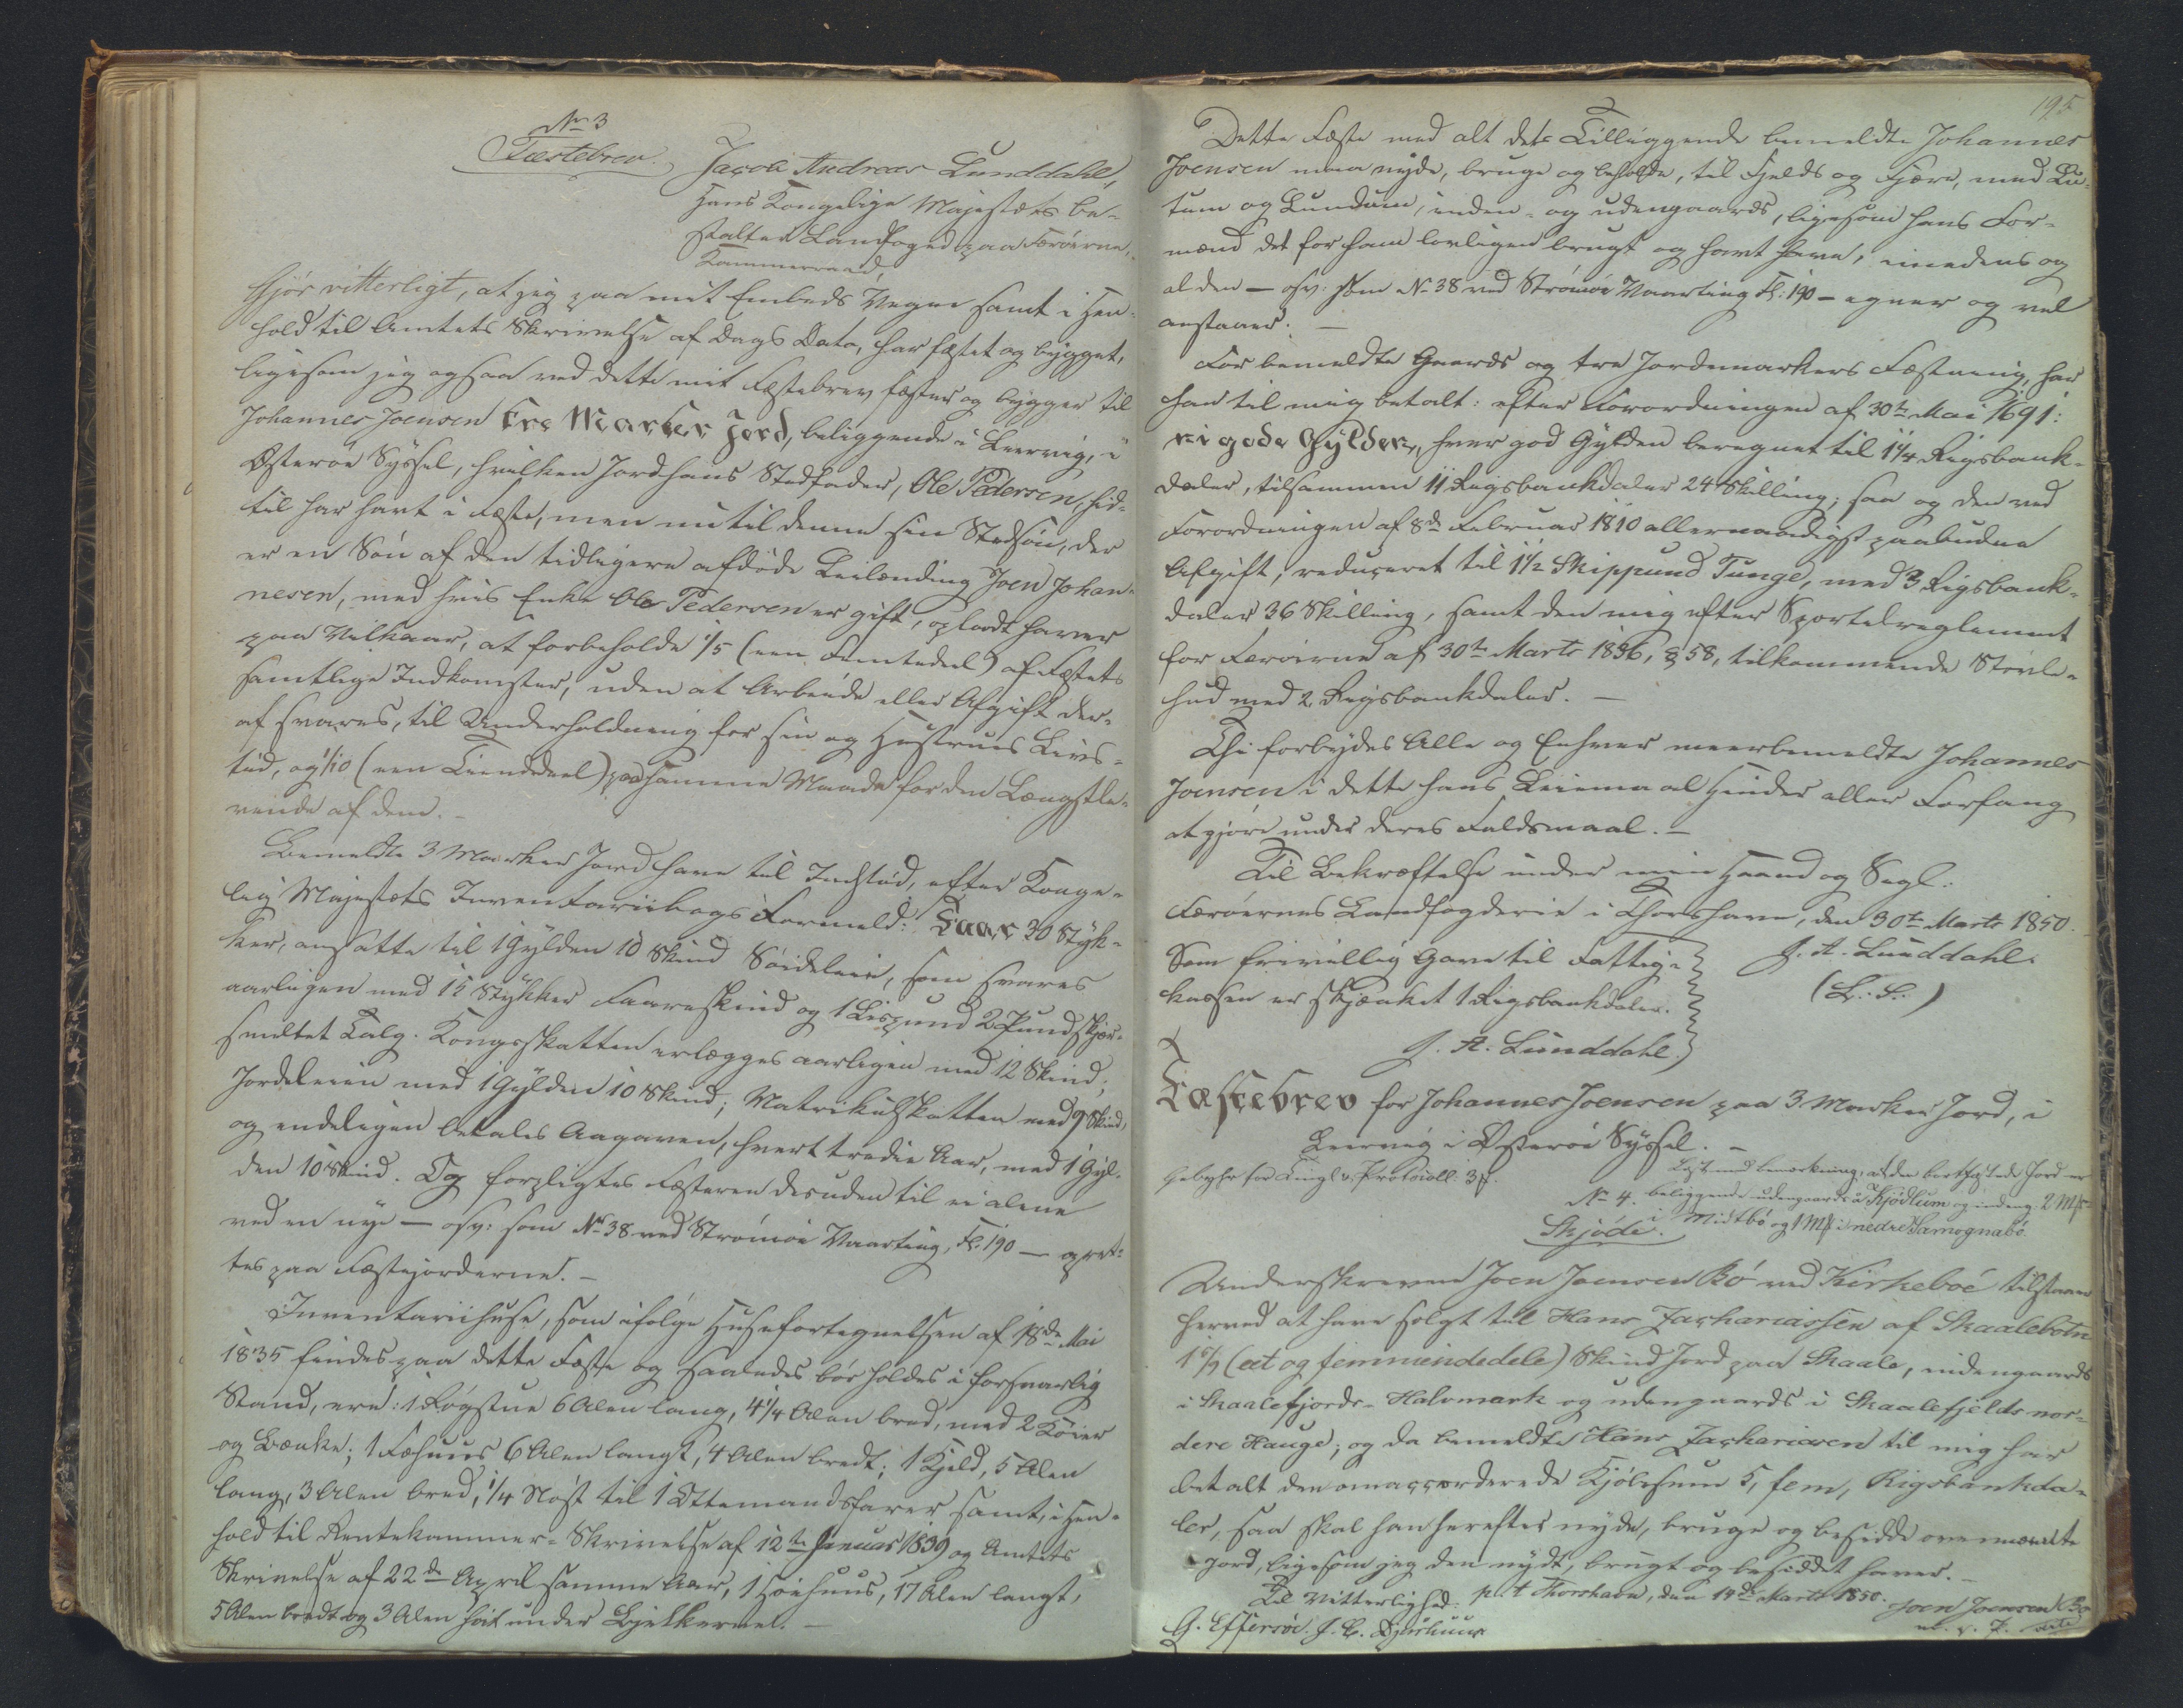 No 3
Fæstebrev.
Jacob Andreas Lunddahl,
Hans Kongelige Majestæts be-
stalter Landfoged paa Færöerne,
Kammerraad,
Gjör vitterligt, at jeg paa mit Embeds Vegne samt i Hen-
hold til Amtets Skrivelse af Dags Dato, har fæstet og bygget,
ligesom jeg ogsaa ved dette mit Fæstebrev fæster og bygger til
Johannes Joensen tre Marker Jord, beliggende i Leervig, i
Österöe Syssel, hvilken Jord hans Stedfader, Ole Pedersen, hid-
til har havt i Fæste, men nu til denne sin Stedsön, der
er en Sön af den tidligere afdöde Leilænding Joen Johan-
nesen, med hvis Enke Ole Pedersen er gift, opladt haver
paa Vilkaar, at forbeholde 1/5 (een Femtedeel) af Fæstets
samtlige Indkomster, uden at Arbeide eller Afgift der-
af svares, til Underholdning for sin og Hustrues Livs-
tid, og 1/10 (een Tiendedeel) paa samme Maade for den Længstle-
vende af dem. -
Bemeldte 3 Marker Jord have til Indstöd, efter Konge-
lig Majestæts Inventariibogs Formeld: Faar 30 Styk-
ker, ansatte til 1 Gylden 10 Skind Söideleie, som svares
aarligen med 15 Stykker Faareskind og 1 Lispund 2 Pund skjær-
smeltet Talg. Kongsskatten erlægges aarligen med 12 Skind;
Jordeleien med 1 Gylden 10 Skind; Matrikulskatten med 9 Skind,
og endeligen betales Aagaven, hvert tredie Aar, med 1 Gyl-
den 10 Skind. Og forpligtes Fæsteren desuden til ei alene
ved en nye - osv: som No 38 ved Strömöe Vaarting, Fl. 190 - opret-
tes paa Fæstejorderne. -
Inventariihuse, som ifölge Husefortegnelsen af 18de Mai
1835 findes paa dette Fæste og saaledes bör holdes i forsvarlig
Stand, ere: 1 Rögstue 6 Alen lang, 4 1/4 Alen bred, med 2 Köier
og Bænke; 1 Fæhuus 6 Alen langt, 4 Alen bredt; 1 Hjeld, 5 Alen
lang, 3 Alen bred, 1/4 Nöst til 1 Ottemandsfarer, samt, i Hen-
hold til Rentekammer-Skrivelse af 12te Januar 1839 og Amtets
Skrivelse af 22de April samme Aar, 1 Höehuus, 17 Alen langt,
5 Alen bredt og 3 Alen höit under Bjelkerne. -
195
Dette Fæste med alt dets Tilliggende bemeldte Johannes
Joensen maa nyde, bruge og beholde, til Fjelds og Fjære, med Lu-
tum og Lundum, inden- og udengaards, ligesom hans For-
mænd det for ham lovligen brugt og havt have, imedens og
al den - osv: som No 38 ved Strömöe Vaarting Fl: 190 - egner og vel
anstaaer. -
For bemeldte Gaards og tre Jordemarkers Fæstning, har
han til mig betalt: efter Forordningen af 30te Mai 1691:
ni gode Gylden, hver god Gylden beregnet til 1 1/4 Rigsbank-
daler, tilsammen 11 Rigsbankdaler 24 Skilling; saa og den ved
Forordningen af 8de Februar 1810 allernaadigst paabudne
Afgift, reduceret til 1 1/2 Skippund Tunge, med 3 Rigsbank-
daler 36 Skilling, samt den mig efter Sportelreglement
for Færöerne af 30te Marts 1836, § 58, tilkommende Stövle-
hud med 2 Rigsbankdaler. -
Thi forbydes Alle og Enhver meerbemeldte Johannes
Joensen i dette hans Leiemaal Hinder eller Forfang
at gjöre under deres Faldsmaal. -
Til Bekræftelse under min Haand og Segl.
Færöernes Landfogderie i Thorshavn, den 30te Marts 1850.
Som frivillig Gave til Fattig-
kassen er skjænket 1 Rigsbankdaler.
J. A. Lunddahl.
J. A. Lunddahl.
(L. S.)
Fæstebrev for Johannes Joensen paa 3 Marker Jord, i
Leervig i Österöe Syssel. -
Gebyhr for Tingl. v. Protocoll: 3 f.
Læst med Bemærkning, at den bortfæstede Jord er
beliggende udengaards i Kjödlum og indeng. 2 Mk
i Midtbö og 1 Mk i nedre Gamognabö.
No 4.
Skjöde.
Underskrevne Joen Joensen Bö ved Kirkeboe tilstaaer
herved at have solgt til Hans Zachariassen af Skaalebotn
1 5/9 (eet og femniendedele) Skind Jord paa Skaale, indengaards
i Skaalefjords-Halvmark og udengaards i Skaalefjelds nor-
dere Hauge; og da bemeldte Hans Zachariasen til mig har
betalt den omaccorderede Kjöbesum 5, fem, Rigsbankda-
ler, saa skal han herefter nyde, bruge og besidde ovennævnte
Jord, ligesom jeg den nydt, brugt og besiddet haver. -
p. t. Thorshavn, den 14de Marts 1850.
Til Vitterlighed:
Joen Joensen Bö
G. Effersöe. J. C. Djurhuus
m. f. P.